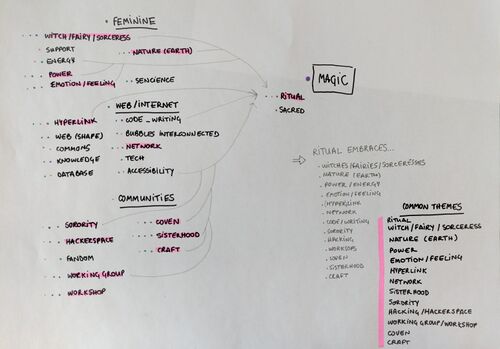 FEMININE
WITCH/FAIRY/SORCERESS
SUPPORT
ENERGY
POWER
EMOTION/FEELING
NATURE (EARTH)
SENCIENCE
WEB/INTERNET
HYPERLINK
WEB (SHAPE)
COMMONS
KNOWLEDGE
DATABASE
CODE_WRITING
BUBBLES INTERCONNECTED
NETWORK
TECH
ACCESSIBILITY
COMMUNITIES
SORORITY
HACKERSPACE
FANDOM
WORKING GROUP
WORKSHOP
COVEN
SISTERHOOD
CRAFT
MAGIC
RITUAL
SACRED
RITUAL EMBRACES...
WITCHES/FAIRIES/SORCERESSES
NATURE (EARTH)
POWER/ENERGY
EMOTION/FEELING
HYPERLINK
NETWORK
CODE/WRITING
SORORITY
HACKING
COVEN
SISTERHOOD
CRAFT
COMMON THEMES
RITUAL
WITCH/FAIRY/SORCERESS
NATURE (EARTH)
POWER
EMOTION/FEELING
HYPERLINK
NETWORK
SISTERHOOD
SORORITY
HACKING/HACKERSPACE
WORKING GROUP/WORKSHOP
COVEN
CRAFT